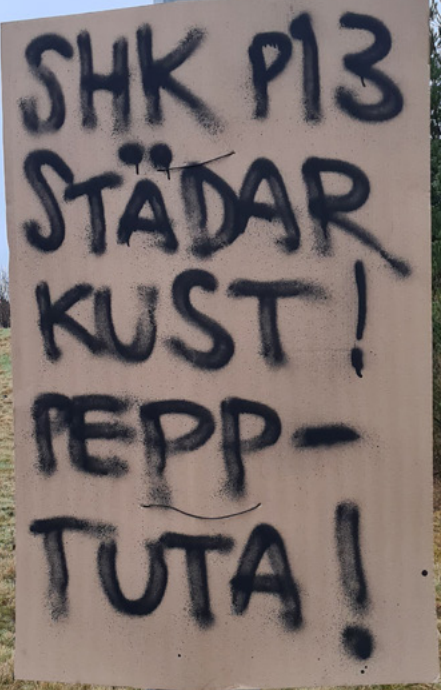 SHK P13
STÄDAR
KUST!
PEPP-
TUTA!